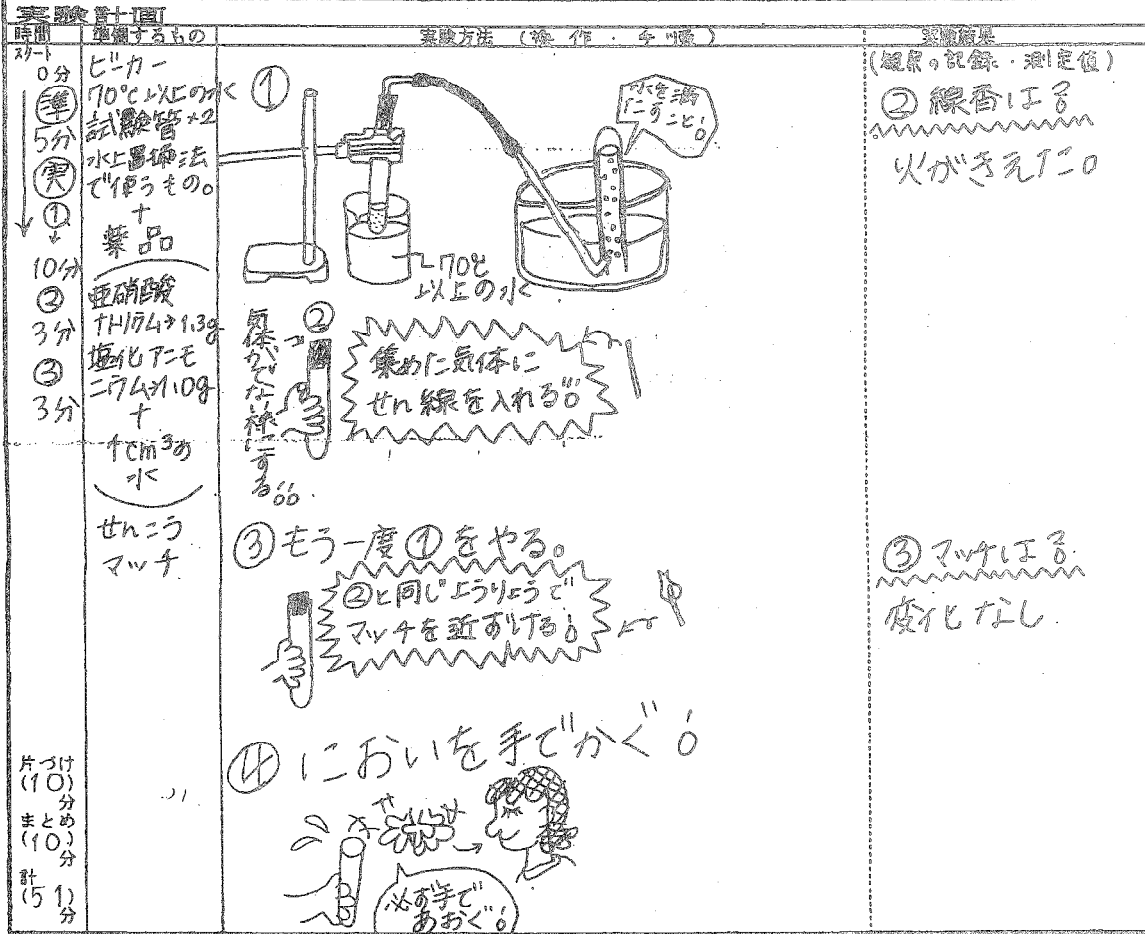 実験計画
時間
準備するもの
実験方法 (操作・手順)
実験結果
スタート
0分
準
5分
実
①
10分
②
3分
③
3分
片づけ
(10)
分
まとめ
(10)
分
計
(51)
分
ビーカー
70℃以上の水
試験管×2
水上置換法
で使うもの。
+
薬品
亜硝酸
ナトリウム→1.3g
塩化アンモ
ニウム→1.0g
+
4cm³の
水
せんこう
マッチ
①
水を満
たすこと!
70℃
以上の水
②
気体がでない様にする!!
集めた気体に
せん線を入れる!!
③もう一度①をやる。
②と同じようりょうで
マッチを近ずける!
④においを手でかぐ!
必ず手で
あおぐ!
(観察の記録・測定値)
②線香は?
火がきえた。
③マッチは?
変化なし